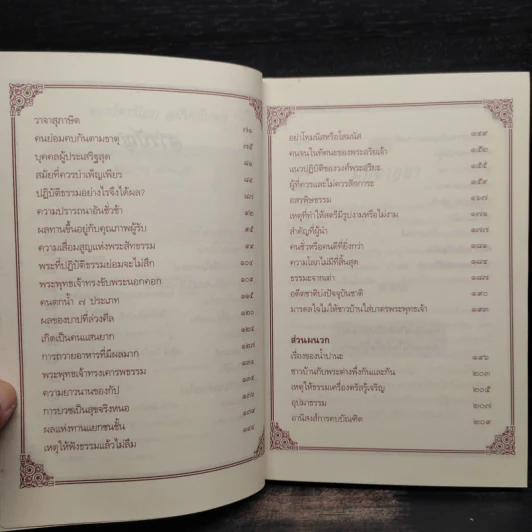 วาจาสุภาษิต ๗๑
คนย่อมคบกันตามธาตุ ๗๕
บุคคลผู้ประเสริฐสุด ๘๑
สมัยที่ควรบำเพ็ญเพียร ๘๔
ปฏิบัติธรรมอย่างไรจึงได้ผล? ๘๗
ความปรารถนาอันชั่วช้า ๙๒
ผลทานขึ้นอยู่กับคุณภาพผู้รับ ๙๕
ความเสื่อมสูญแห่งพระสัทธรรม ๙๙
พระที่ปฏิบัติธรรมย่อมจะไม่สึก ๑๐๔
พระพุทธเจ้าทรงขับพระนอกคอก ๑๐๙
คนตกน้ำ ๗ ประเภท ๑๑๕
ผลของบาปที่ล่วงศีล ๑๒๐
เกิดเป็นคนแสนยาก ๑๒๔
การถวายอาหารที่มีผลมาก ๑๒๗
พระพุทธเจ้าทรงเคารพธรรม
ความยาวนานของกัป
การบวชเป็นสุขจริงหนอ
ผลแห่งทานแยกชนชั้น
เหตุให้ฟังธรรมแล้วไม่ลืม
อย่าโทมนัสหรือโสมนัส ๑๔๙
คนจนในทัศนะของพระอริยเจ้า ๑๕๒
แนวปฏิบัติของวงศ์พระอริยะ ๑๕๕
ผู้ที่ควรและไม่ควรสักการะ ๑๕๙
อสรพิษธรรม ๑๖๗
เหตุที่ทำให้สตรีมีรูปงามหรือไม่งาม ๑๗๑
สำคัญที่ผู้นำ ๑๗๗
คนชั่วหรือคนดีที่ยิ่งกว่า ๑๘๑
ความโลภไม่มีที่สิ้นสุด ๑๘๔
ธรรมะจากเต่า ๑๘๗
อดีตชาติบ่งปัจจุบันชาติ ๑๙๐
มารดลใจไม่ให้ชาวบ้านใส่บาตรพระพุทธเจ้า ๑๙๓
ส่วนผนวก
เรื่องของน้ำปานะ ๑๙๖
ชาวบ้านกับพระต่างพึ่งกันและกัน ๒๐๓
เหตุให้ธรรมเครื่องตรัสรู้เจริญ ๒๐๕
อุปมาธรรม ๒๐๗
อานิสงส์การคบบัณฑิต ๒๐๙